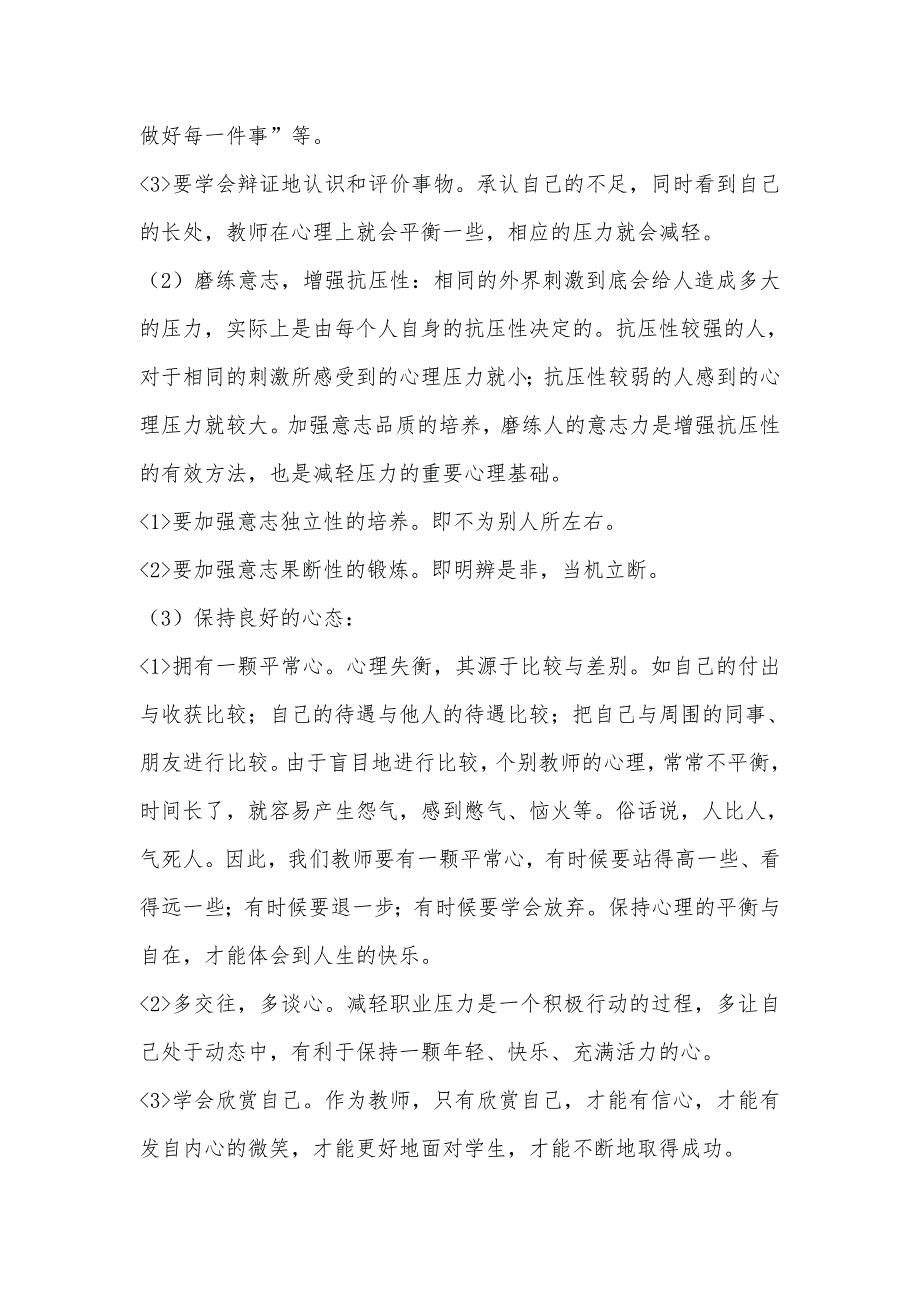 做好每一件事”等。
<3>要学会辩证地认识和评价事物。承认自己的不足，同时看到自己
的长处，教师在心理上就会平衡一些，相应的压力就会减轻。
（2）磨练意志，增强抗压性：相同的外界刺激到底会给人造成多大
的压力，实际上是由每个人自身的抗压性决定的。抗压性较强的人，
对于相同的刺激所感受到的心理压力就小；抗压性较弱的人感到的心
理压力就较大。加强意志品质的培养，磨练人的意志力是增强抗压性
的有效方法，也是减轻压力的重要心理基础。
<1>要加强意志独立性的培养。即不为别人所左右。
<2>要加强意志果断性的锻炼。即明辨是非，当机立断。
（3）保持良好的心态：
<1>拥有一颗平常心。心理失衡，其源于比较与差别。如自己的付出
与收获比较；自己的待遇与他人的待遇比较；把自己与周围的同事、
朋友进行比较。由于盲目地进行比较，个别教师的心理，常常不平衡，
时间长了，就容易产生怨气，感到憋气、恼火等。俗话说，人比人，
气死人。因此，我们教师要有一颗平常心，有时候要站得高一些、看
得远一些；有时候要退一步；有时候要学会放弃。保持心理的平衡与
自在，才能体会到人生的快乐。
<2>多交往，多谈心。减轻职业压力是一个积极行动的过程，多让自
己处于动态中，有利于保持一颗年轻、快乐、充满活力的心。
<3>学会欣赏自己。作为教师，只有欣赏自己，才能有信心，才能有
发自内心的微笑，才能更好地面对学生，才能不断地取得成功。